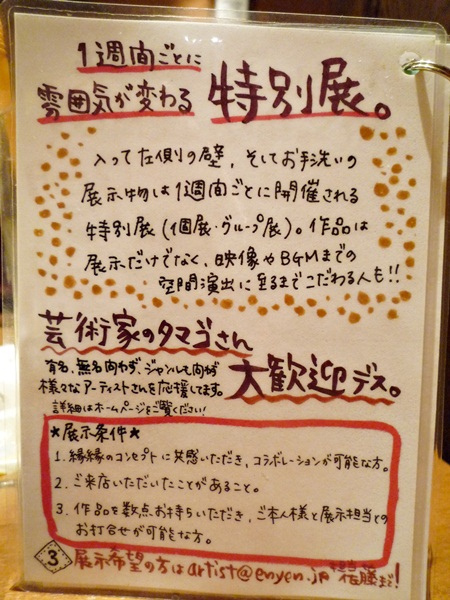 1週間ごとに
雰囲気が変わる 特別展。
入って左側の壁、そしてお手洗いの
展示物は1週間ごとに開催される
特別展(個展・グループ展)。作品は
展示だけでなく、映像やBGMまでの
空間演出に至るまでこだわる人も!!
芸術家のタマゴさん
大歓迎デス。
有名、無名問わず、ジャンルも問わず
様々なアーティストさんを応援してます。
詳細はホームページをご覧ください!
★展示条件★
1. 縁縁のコンセプトに共感いただき、コラボレーションが可能な方。
2. ご来店いただいたことがあること。
3. 作品を数点お持ちいただき、ご本人様と展示担当との
お打合せが可能な方。
3 展示希望の方はartist@enyen.jp 担当 佐藤まで!